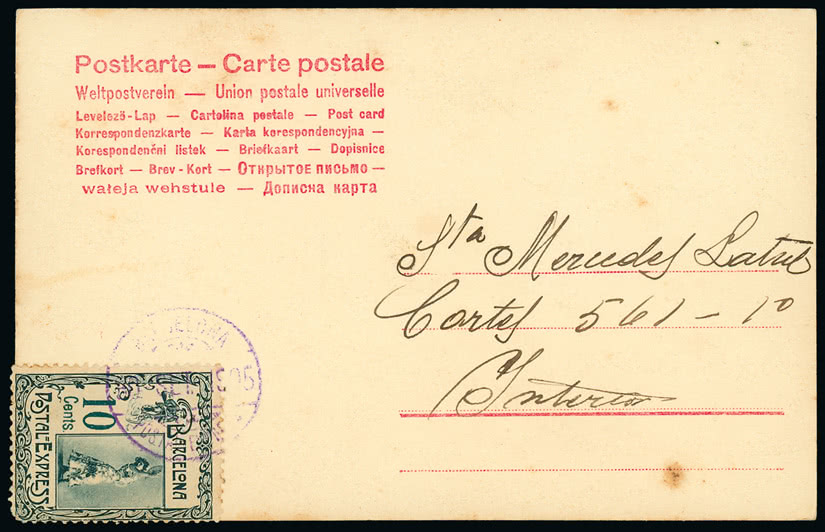 Postkarte — Carte postale
Weltpostverein — Union postale universelle
Levelező-Lap — Cartolina postale — Post card
Korrespondenzkarte — Karta korespondencyjna —
Korespondenční listek — Briefkaart — Dopisnice
Brefkort — Brev-Kort — Открытое письмо —
wałeja wehstule — Дописна карта
Sta Mercedes
Cortes 561 - 1º
Interior
BARCELONA
10
Cents.
POSTAL-EXPRESS